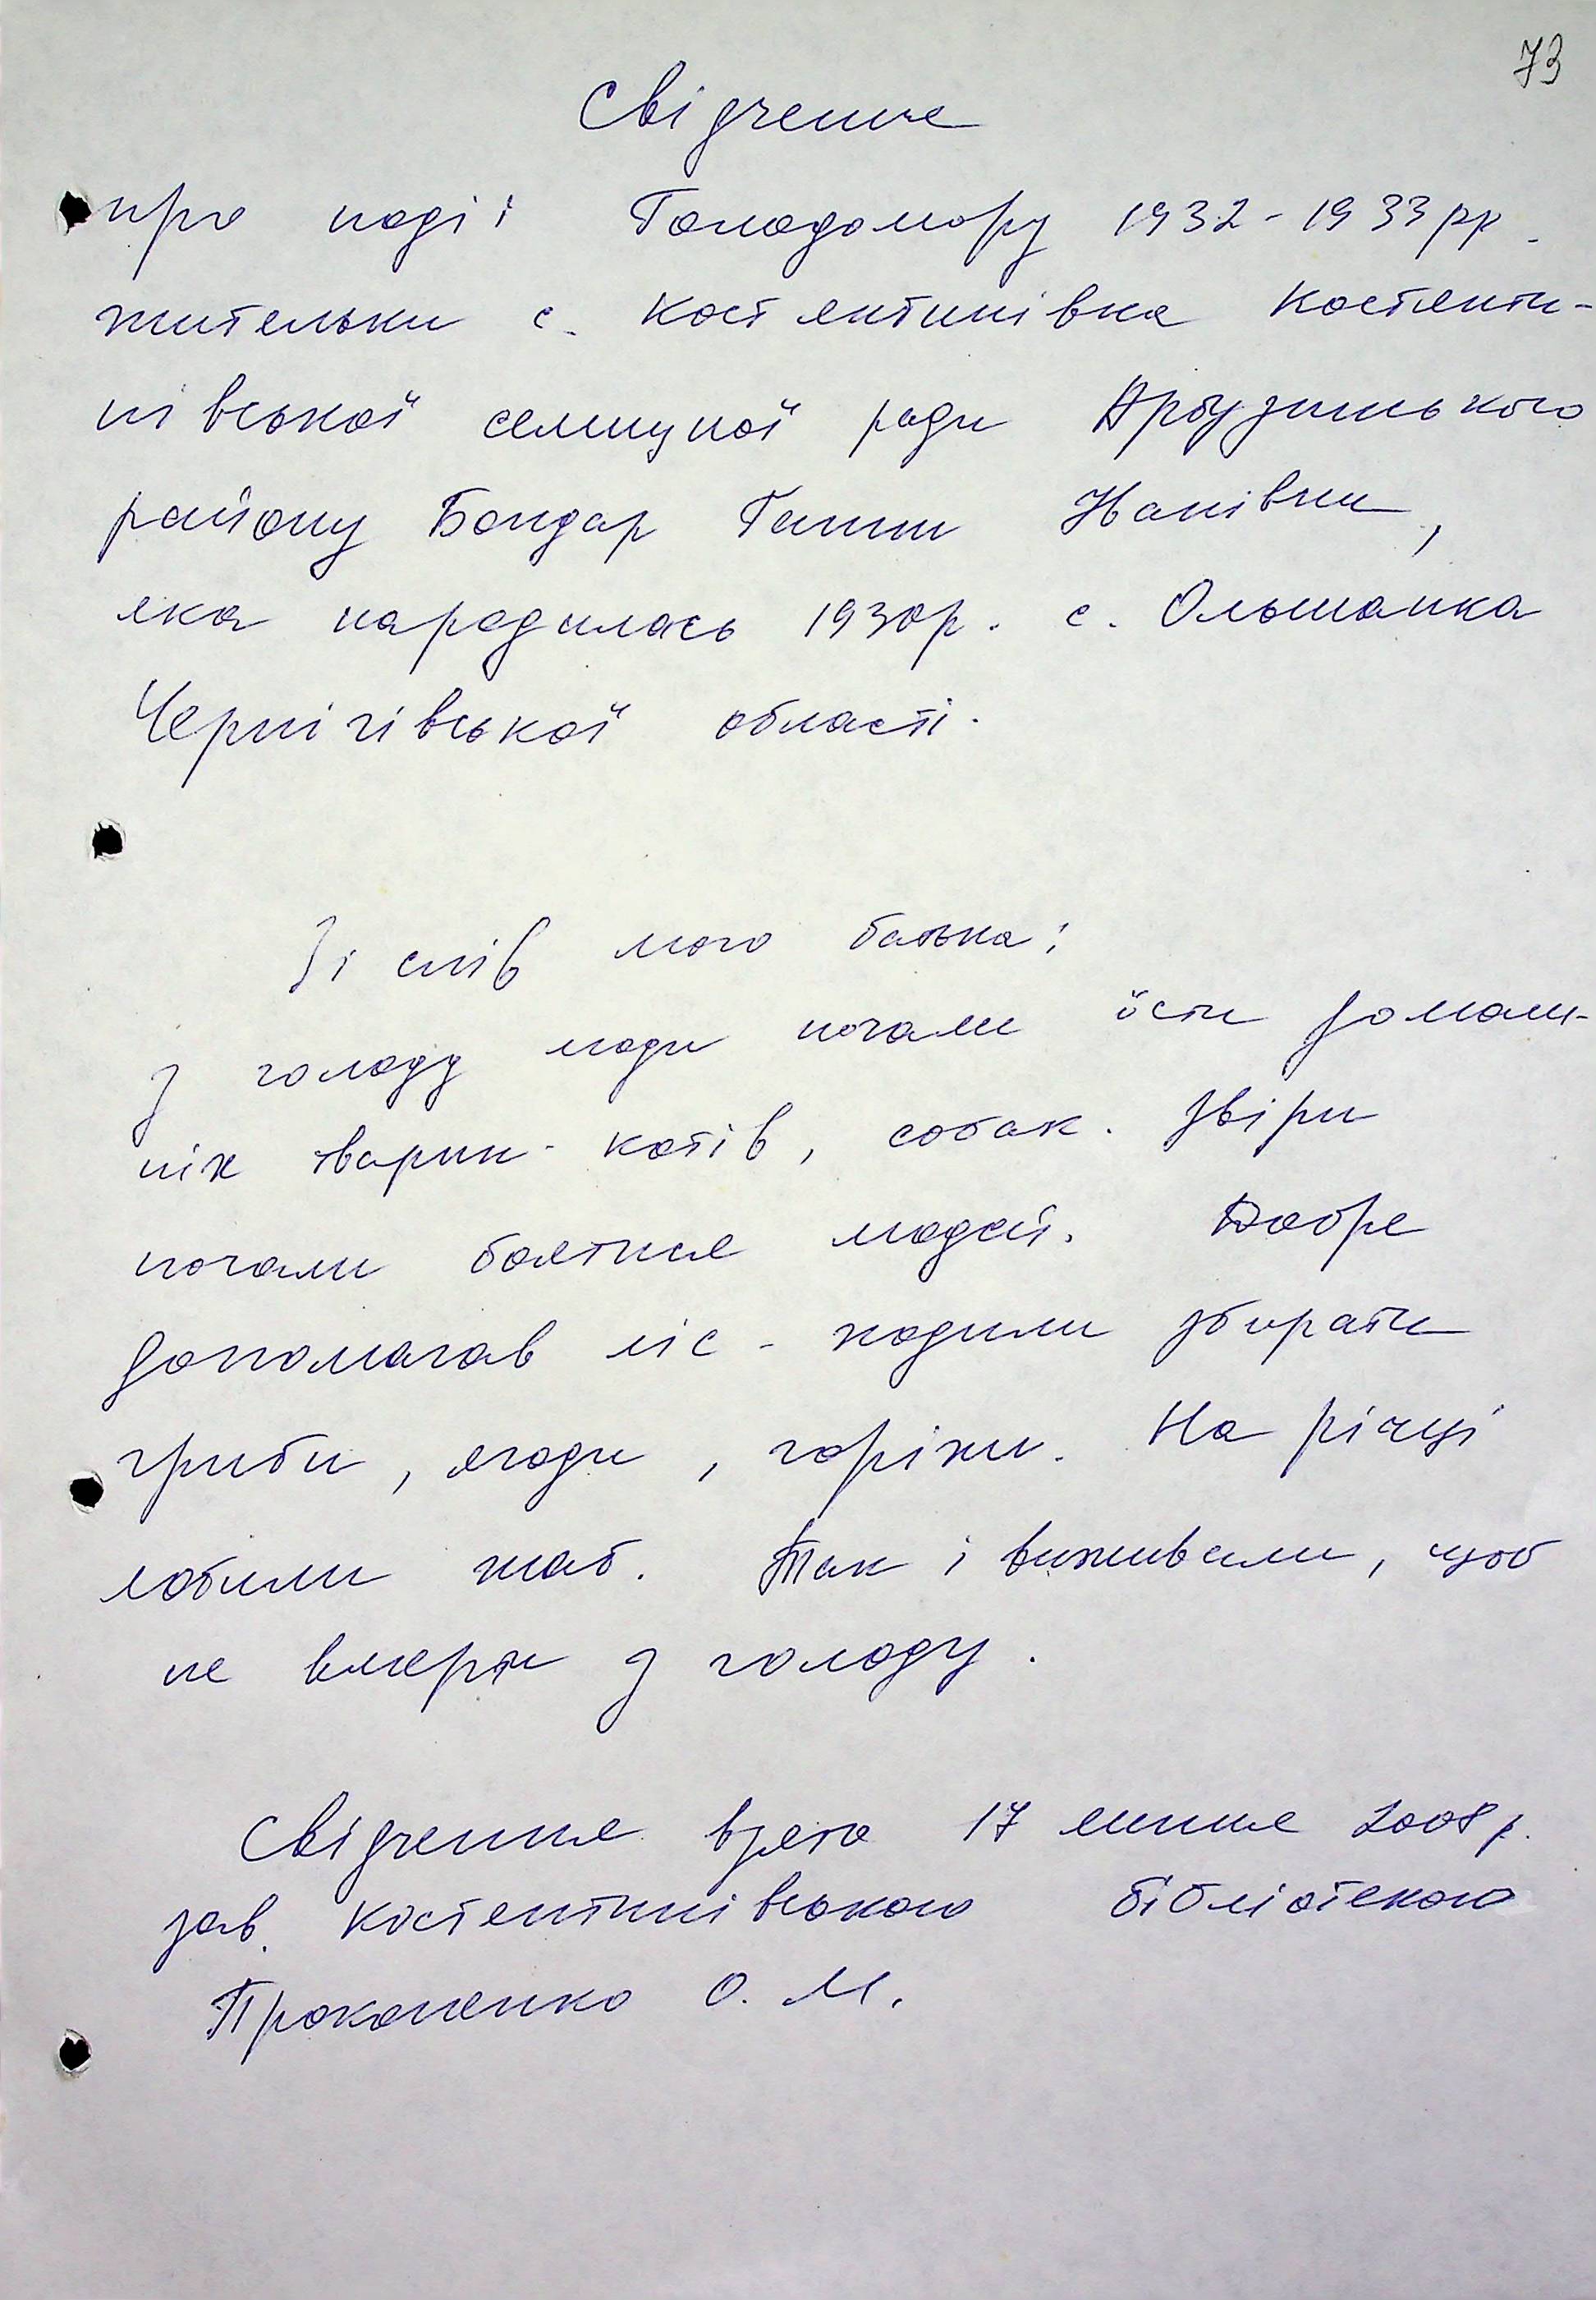 73
Свідчення
про події Голодомору 1932-1933 рр.
жительки с. Костянтинівка Костянти-
нівської селищної ради Арбузинького
району Бондар Ганни Іванівни,
яка народилась 1930 р. с. Ольшанка
Чернігівської області.
Зі слів мого батька:
З голоду люди почали їсти домаш-
ніх тварин - котів, собак. Звіри
почали боятися людей. Добре
допомагав ліс - ходили збирати
гриби, ягоди, горіхи. На річці
ловили жаб. Так і виживали, щоб
не вмерти з голоду.
Свідчення взято 17 липня 2008 р.
зав. Костянтинівською бібліотекою
Прокопенко О. М.